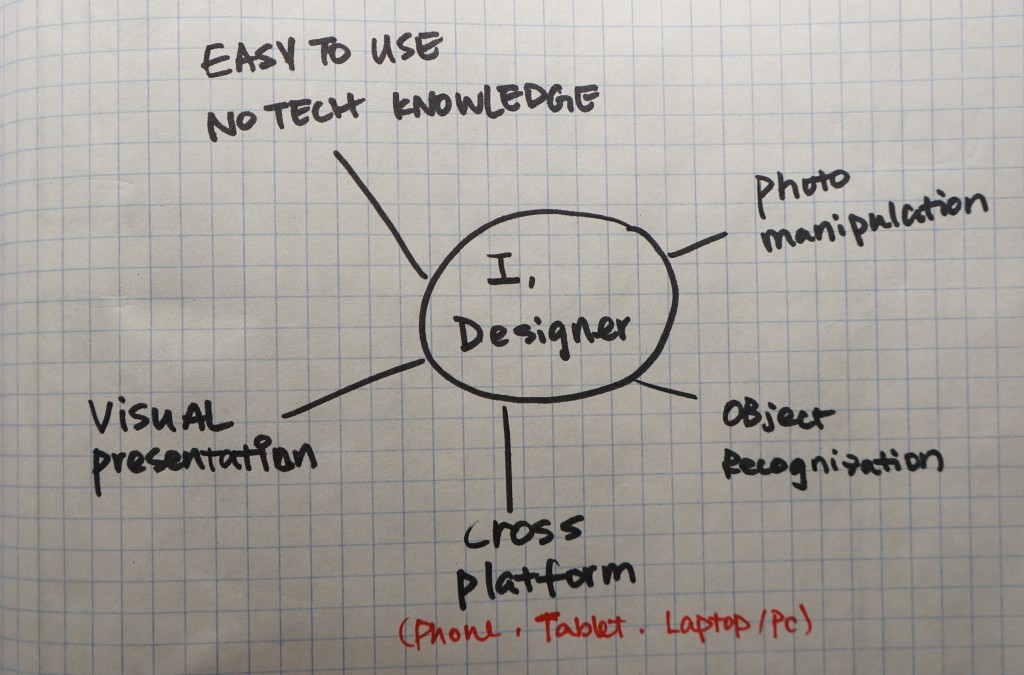 EASY TO USE
NO TECH KNOWLEDGE
photo
manipulation
I,
Designer
VISUAL
presentation
OBject
Recognization
Cross
platform
(phone, Tablet. Laptop/Pc)